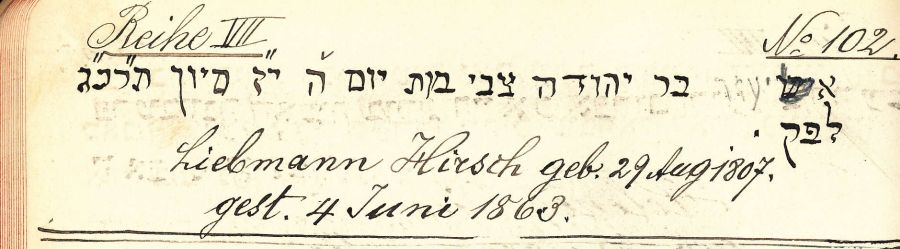 Reihe VIII No 102.
אליעזר בר יהודה צבי במת יום ה' י"ז סיון תרכ"ג
לפק
Liebmann Hirsch geb. 29 Aug 1807.
gest. 4 Juni 1863.